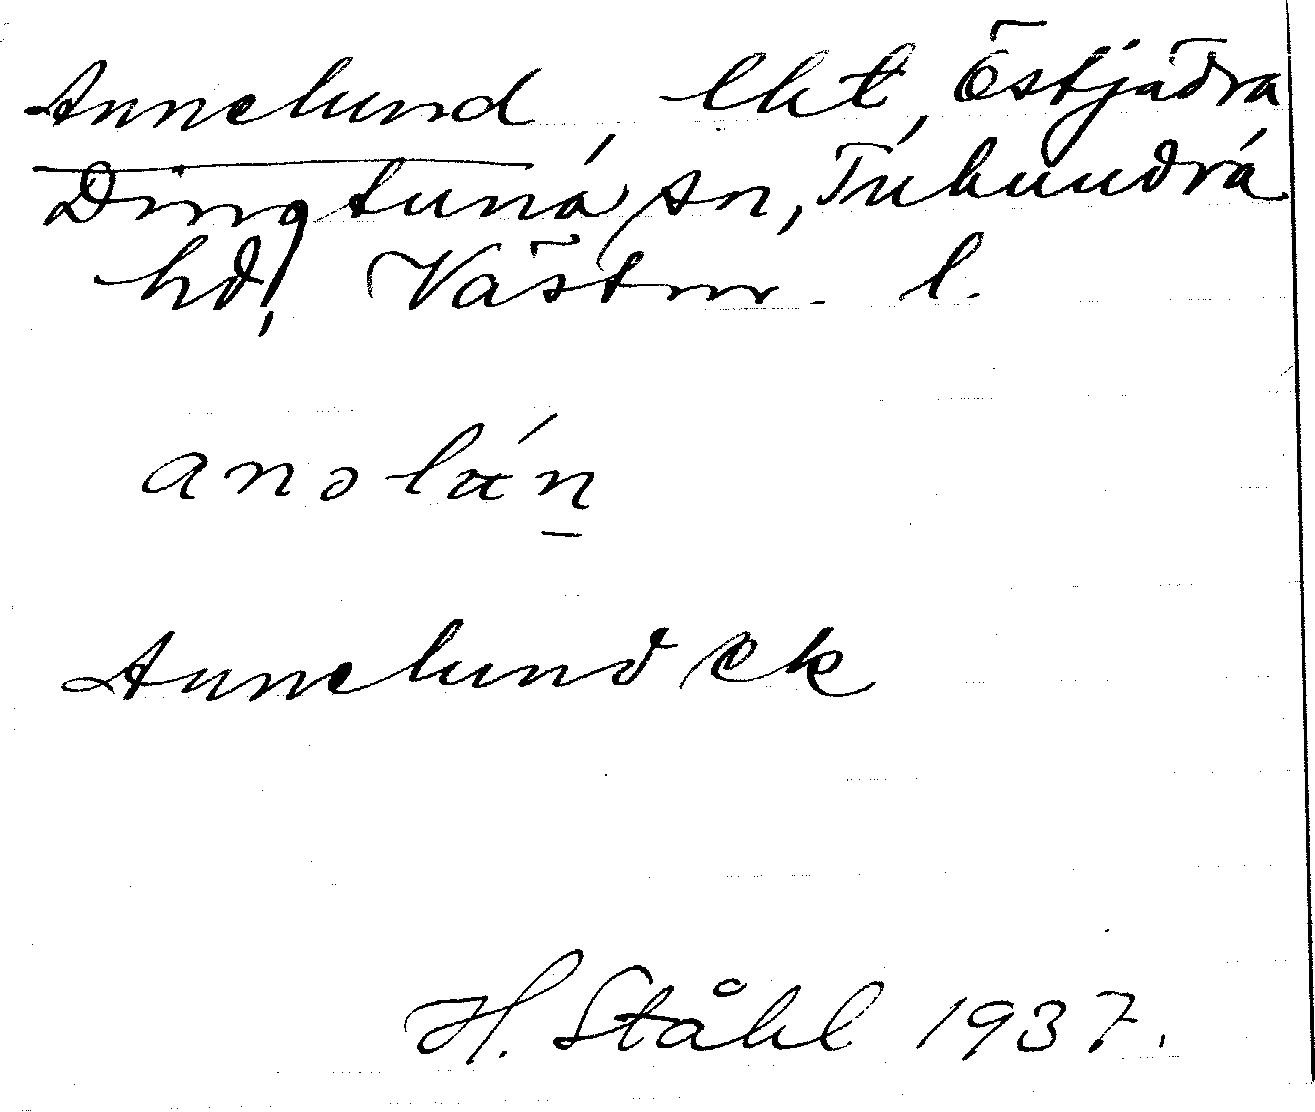 Annelund, lht, Östjädra
Dingtuna sn, Tuhundra
hd, Västm. l.
anəlán
Annelund ek
H. Ståhl 1937.